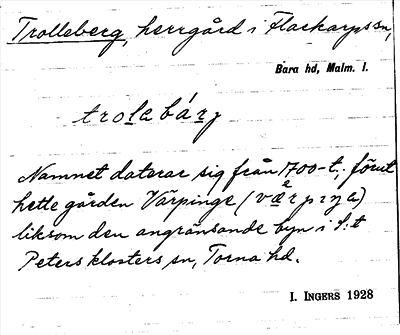 Trolleberg, herrgård i Flackarps sn,
Bara hd, Malm. l.
trolabárj
Namnet daterar sig från 1700-t., förut
hette gården Värpinge (værpıŋa)
liksom den angränsande byn i S:t
Peters klosters sn, Torna hd.
I. INGERS 1928